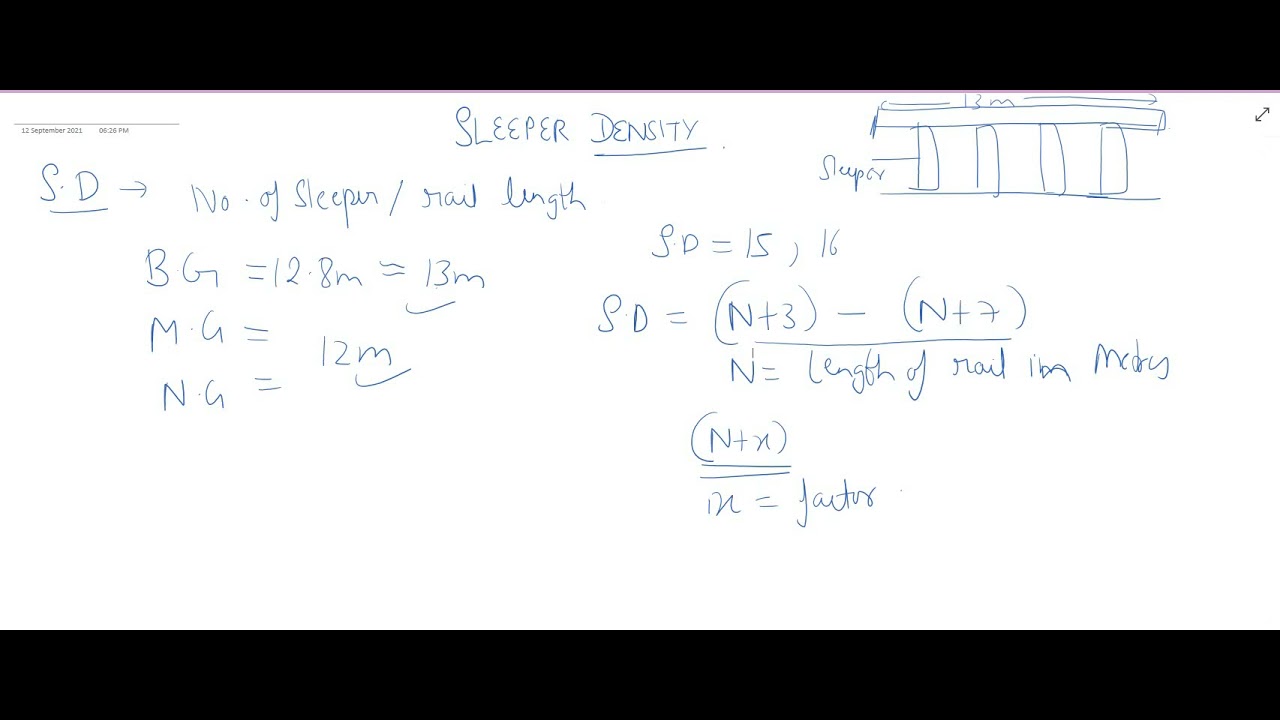 12 September 2021 06:26 PM
SLEEPER DENSITY.
13m
Sleeper
S.D → No. of Sleeper / rail length
B.G = 12.8m ≈ 13m
M.G =
12m
N.G =
S.D = 15, 16
S.D = (N+3) – (N+7)
N = length of rail in Metres
(N+x)
x = factor.